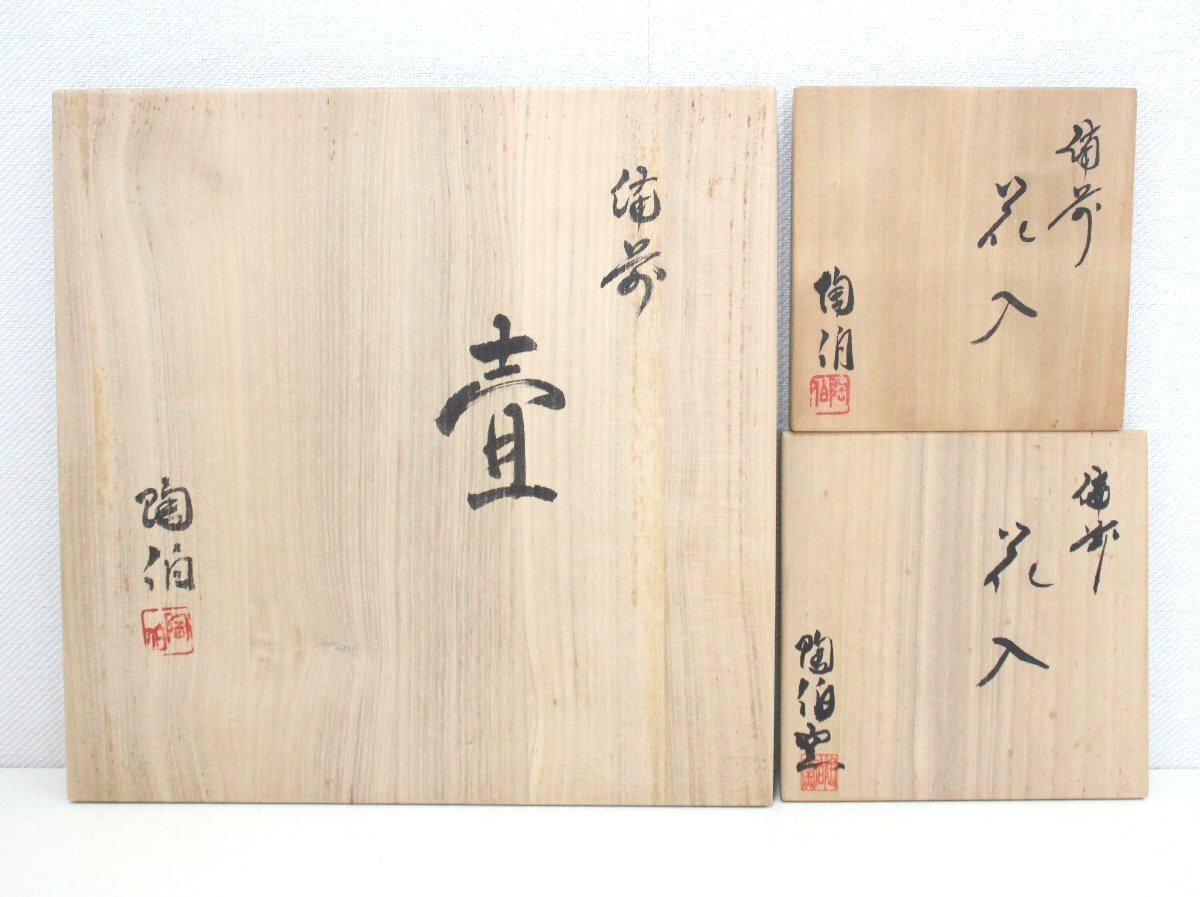 備前
壷
陶伯
陶伯
備前
花入
陶伯
陶伯
備前
花入
陶伯窯